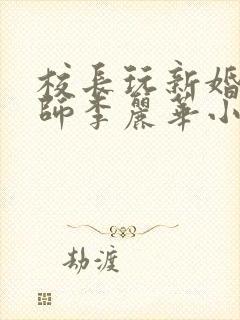 校長玩新婚
師李麗華小
劫渡